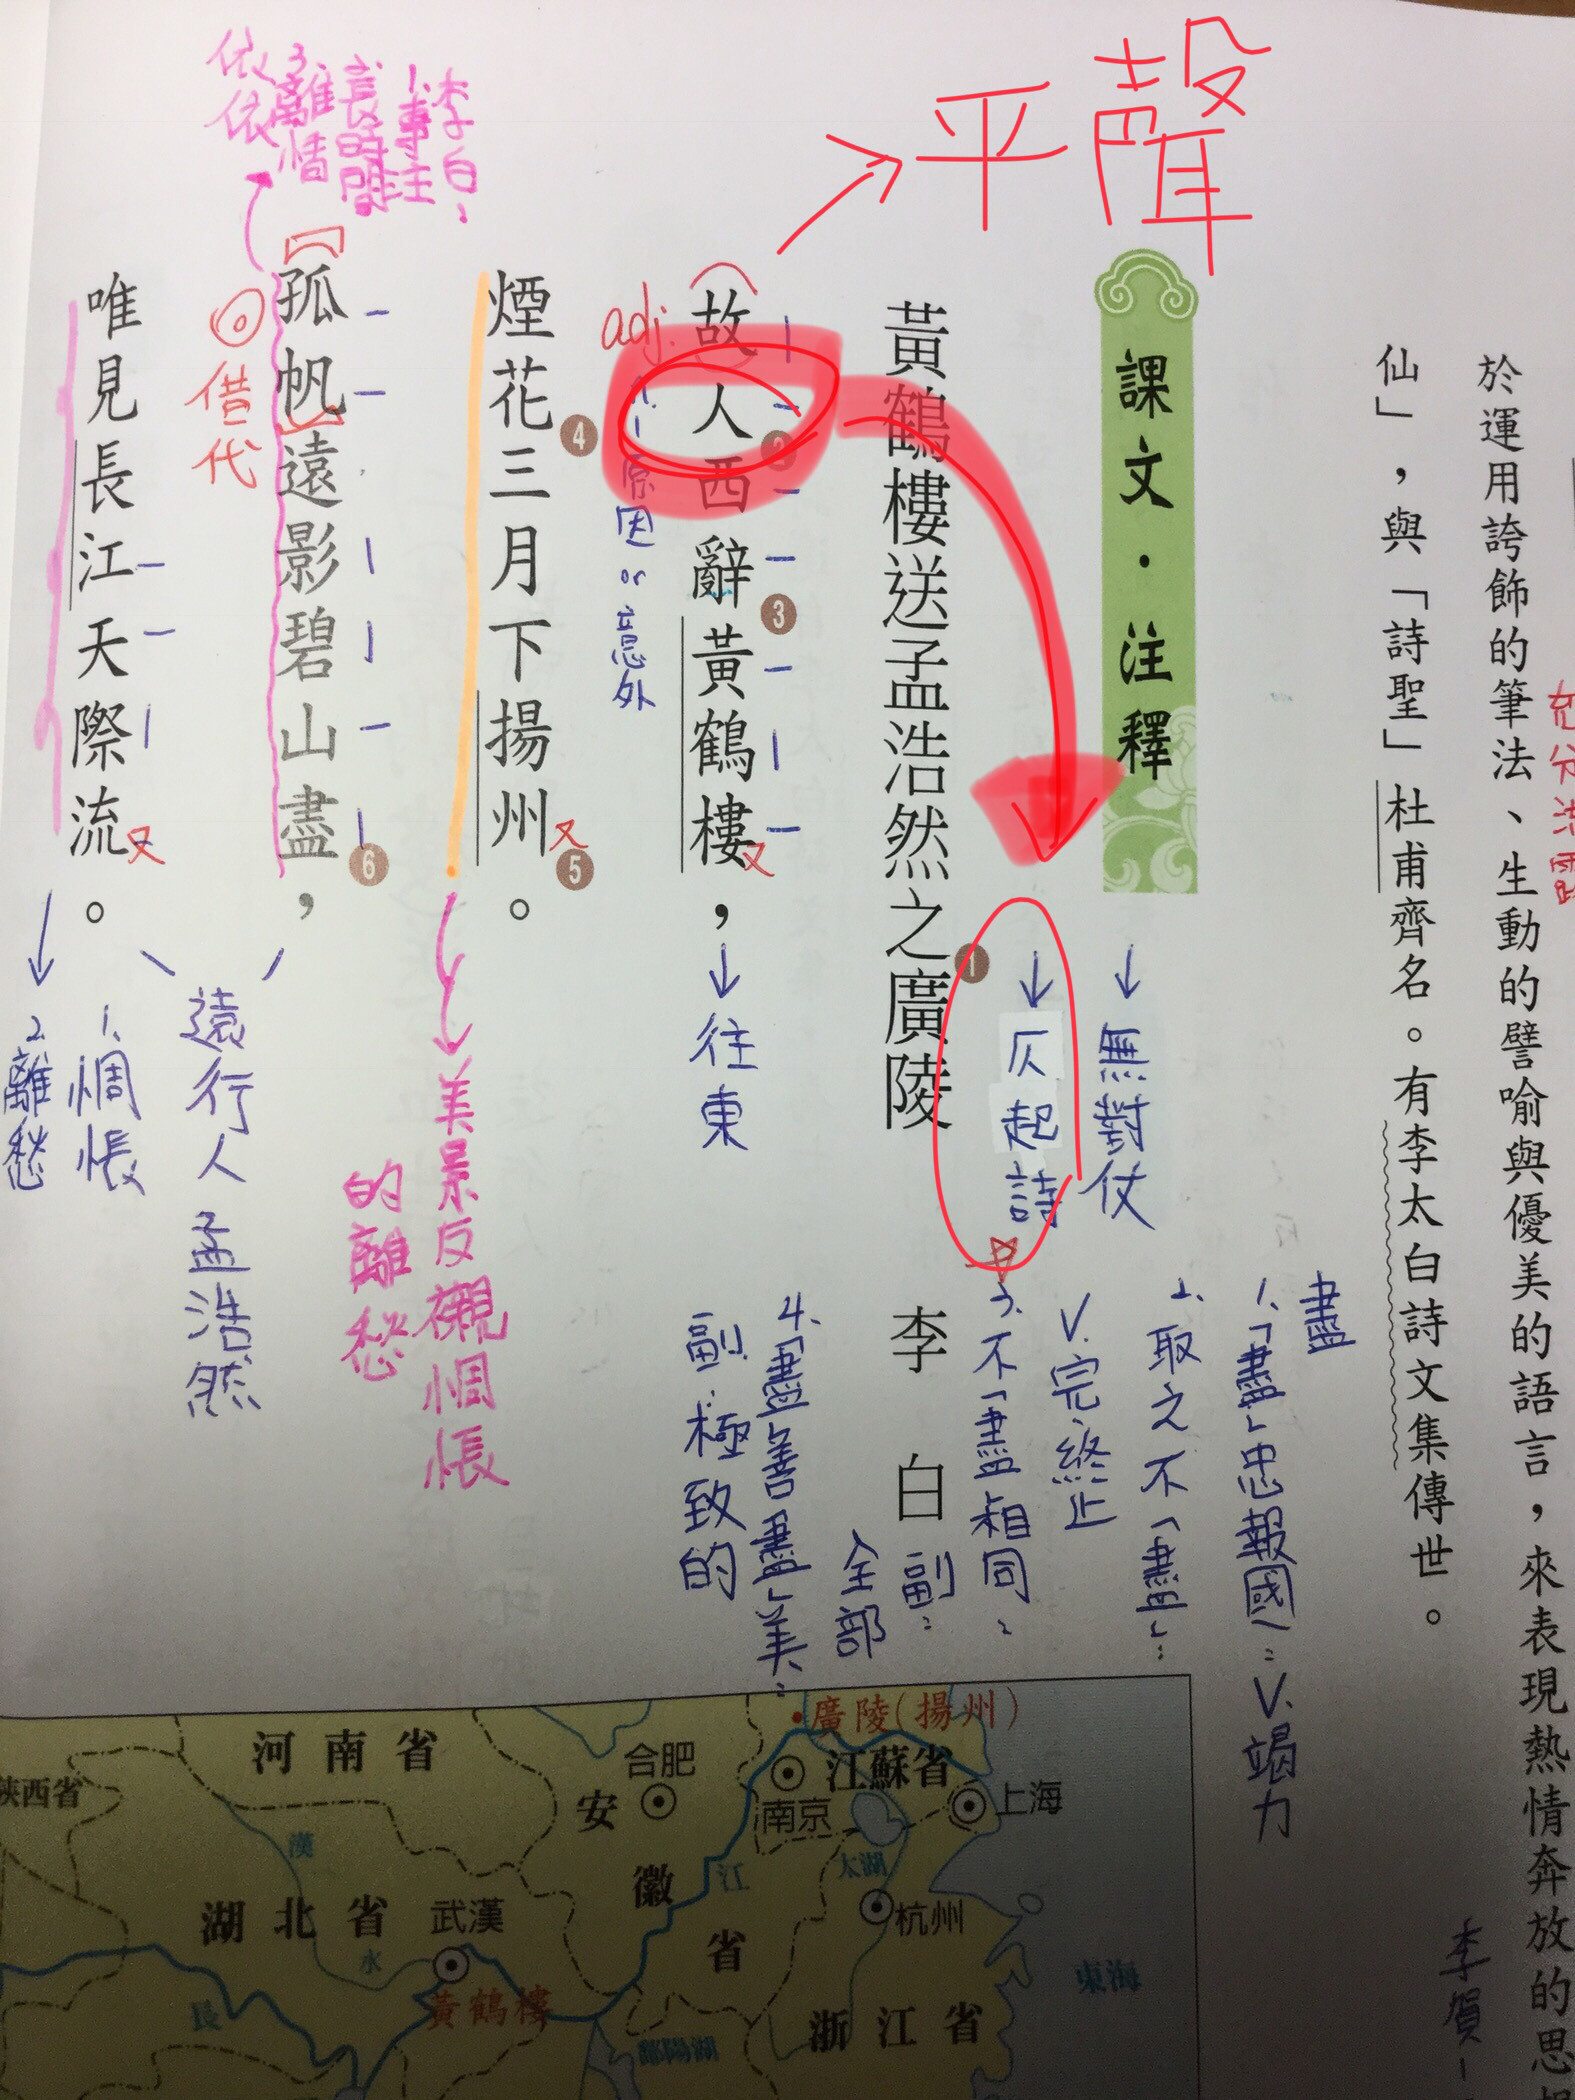 平聲
於運用誇飾的筆法、生動的譬喻與優美的語言，來表現熱情奔放的思
仙」，與「詩聖」杜甫齊名。有李太白詩文集傳世。
李賀
課文．注釋
↓無對仗
↓仄起詩
黃鶴樓送孟浩然之廣陵
1
李白
故人西辭黃鶴樓，
2
3
adj.
n.原因or意外
↓往東
煙花三月下揚州。
4
5
美景反襯惆悵
的離愁
孤帆遠影碧山盡，
6
李白：
1.事主
長時間
3.離情
依依
借代
唯見長江天際流。
遠行人孟浩然
1.惆悵
2.離愁
盡
1.「盡」忠報國：V.竭力
2.取之不「盡」：
V.完、終止
3.不「盡」相同：
副：
全部
4.「盡」善「盡」美：
副.極致的
廣陵(揚州)
河南省
合肥
江蘇省
陝西省
安徽省
南京
上海
漢水
江
太湖
湖北省
武漢
杭州
東海
黃鶴樓
長
鄱陽湖
浙江省